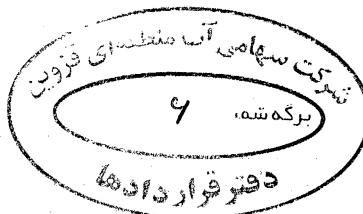 شرکت سهامی آب منطقه‌ای قزوین
برگه شم، ۶
دفتر قراردادها